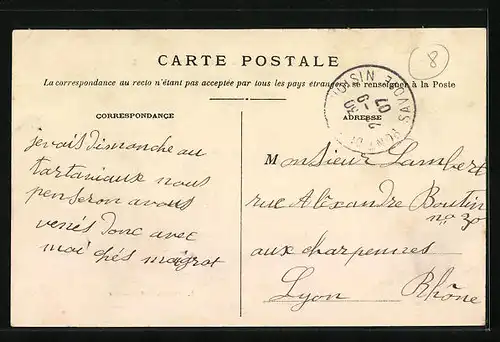 8
CARTE POSTALE
La correspondance au recto n'étant pas acceptée par tous les pays étrangers, se renseigner à la Poste
CORRESPONDANCE
je vais dimanche au
tartaniaux nous
penseron avous
venés donc avec
moi chés maigrat
ADRESSE
Monsieur Lambert
rue Aléxandre Boutin
no 30
aux charpennes
Lyon Rhône